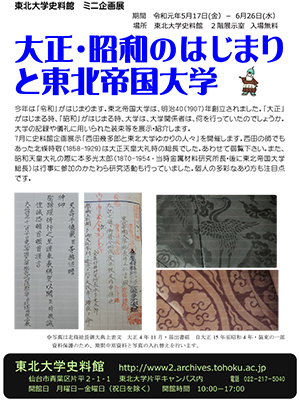 東北大学史料館 ミニ企画展
期間 令和元年5月17日(金) － 6月26日(水)
場所 東北大学史料館 2階展示室 入場無料
大正・昭和のはじまり
と東北帝国大学
今年は「令和」がはじまります。東北帝国大学は、明治40(1907)年創立されました。「大正」
がはじまる時、「昭和」がはじまる時、大学は、大学関係者は、何を行っていたのでしょうか。
大学の記録や儀礼に用いられた装束等を展示・紹介します。
7月に史料館企画展示「西田幾多郎と東北大学ゆかりの人々」を開催します。西田の師でも
あった北條時敬(1858-1929)は大正天皇大礼時の総長でした。あわせて御覧下さい。また、
昭和天皇大礼の際に本多光太郎(1870-1954・当時金属材料研究所長・後に東北帝国大学
総長)は行事に参加のかたわら研究活動も行っていました。個人の多彩なあり方も注目点
です。
東北大学史料館 http://www2.archives.tohoku.ac.jp
仙台市青葉区片平2-1-1 東北大学片平キャンパス内 電話 022-217-5040
開館日 月曜日－金曜日(祝日を除く) 開館時間 10:00－17:00